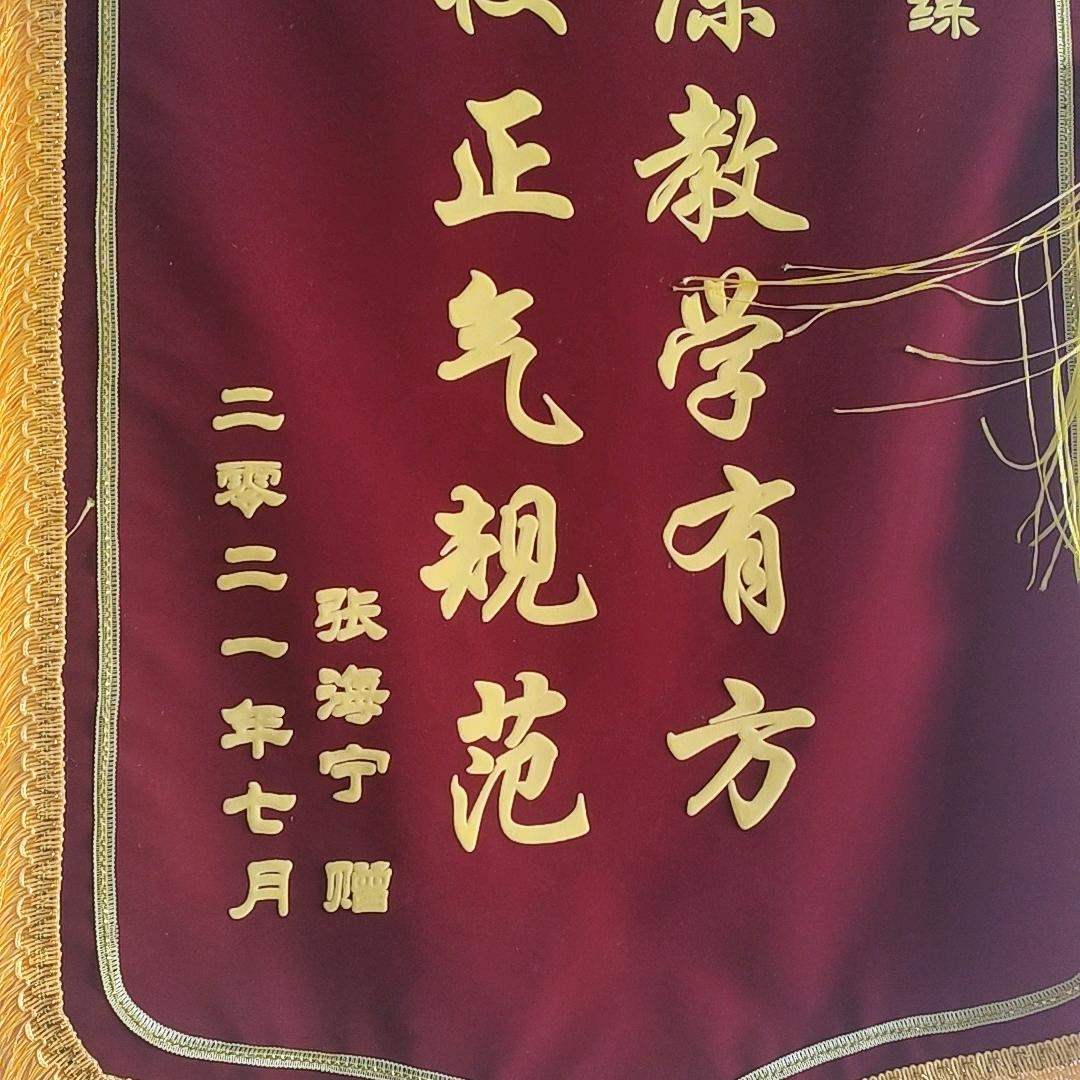 练
教学有方
正气规范
张海宁 赠
二零二一年七月